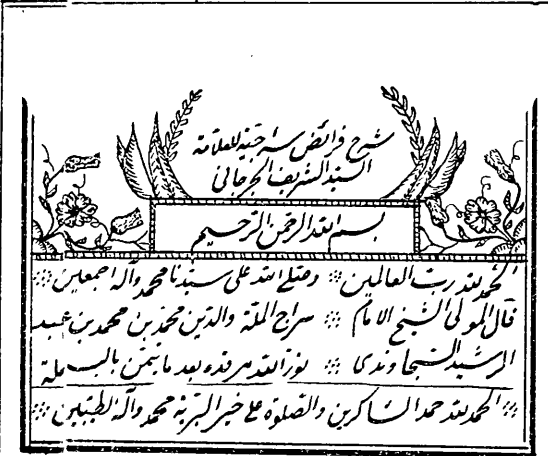 شرح فرائض سراجية للعلامة
السيد الشريف الجرجاني
بسم الله الرحمن الرحيم
الحمد لله رب العالمين ❊ وصلى الله على سيدنا محمد وآله اجمعين ❊
قال المولى الشيخ الامام ❊ سراج الملة والدين محمد بن محمد بن عبد
الرشيد السجاوندى ❊ نور الله مرقده بعد ما تيمن بالبسملة
❊ الحمد لله حمد الشاكرين والصلوة على خير البرية محمد وآله الطيبين ❊